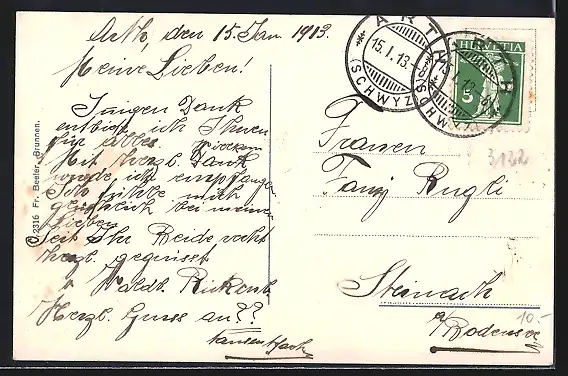 Arth, den 15. Jan 1913.
Meine Lieben!
Innigen Dank
entbiet ich Ihnen
für alles.
Mit herzl. Dank
wurde ich empfangen
Ich fühle mich
glücklich bei meinen
Lieben
Seit Ihr Beide recht
herzl. gegrüsst
v. Waldb.
Herzl. Gruss an ??
C. 2316 Fr. Beeler, Brunnen.
ARTH
15. I. 13.
(SCHWYZ)
ARTH
(SCHWYZ)
HELVETIA
5
Frauen
Fany Rugli
3122
Steinach
a/Bodensee
10.-